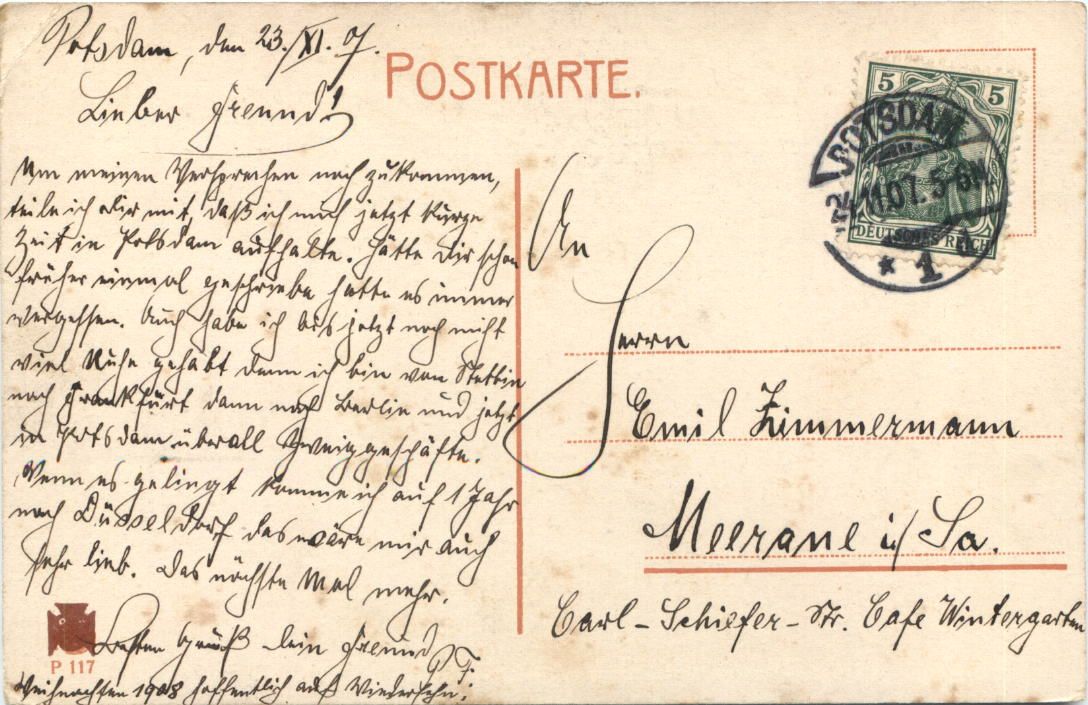 Potsdam, den 23./XI. 07.
POSTKARTE.
Lieber Freund!
Um meinen Versprechen nach zukommen,
teile ich dir mit, daß ich mich jetzt kurze
Zeit in Potsdam aufhalte. Hätte dir schon
früher einmal geschriebe hatte es immer
vergessen. Auch habe ich bis jetzt noch nicht
viel Ruhe gehabt denn ich bin von Stettin
nach Frankfürt dann nach Berlin und jetzt
in Potsdam überall Zweiggeschäfte.
Wenn es gelingt komme ich auf 1 Jahr
nach Düsseldorf das wäre mir auch
sehr lieb. Das nächste Mal mehr.
Besten Gruß Dein Freund
P. F.
Weihnachten 1908 hoffentlich auf Wiedersehn.
P 117
5 5
DEUTSCHES REICH
POTSDAM
24.11.07. 5-6N
* 1
An
Herrn
Emil Zimmermann
Meerane i/Sa.
Carl-Schiefer-Str. Cafe Wintergarten